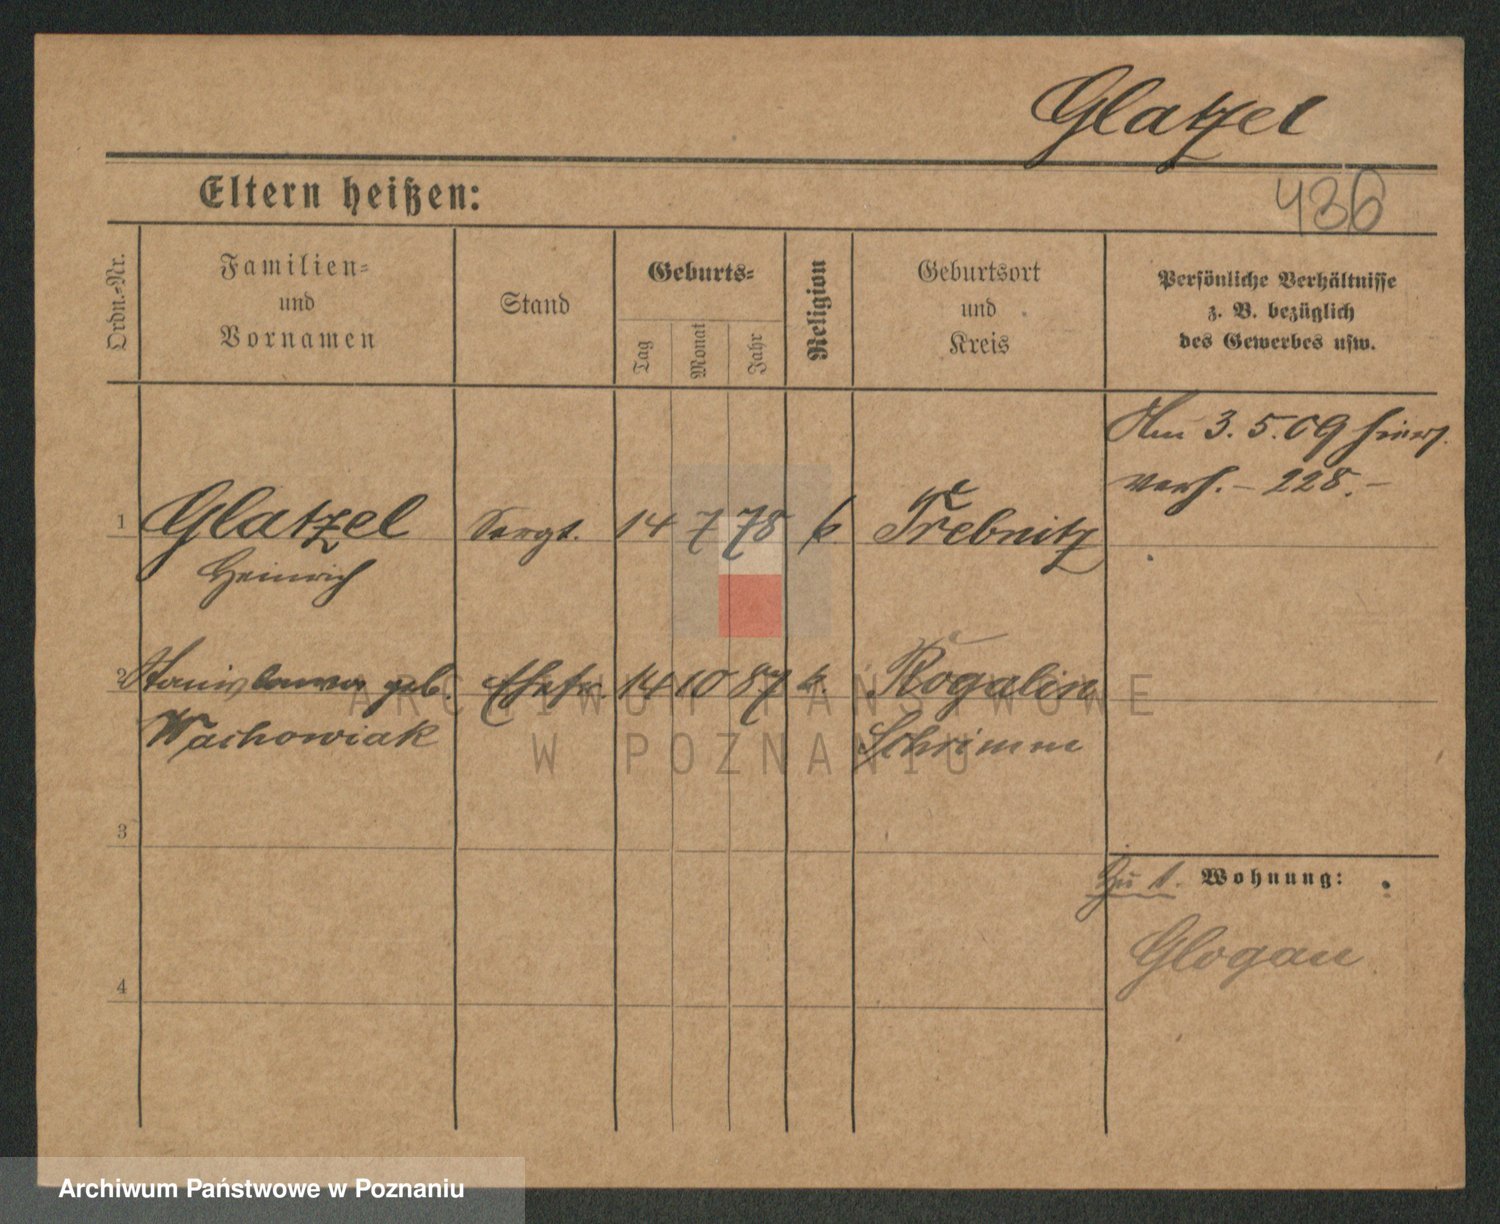 Glatzel
436
Eltern heißen:
Ordn.-Nr.
Familien-
und
Vornamen
Stand
Geburts-
Tag
Monat
Jahr
Religion
Geburtsort
und
Kreis
Persönliche Verhältnisse
z. B. bezüglich
des Gewerbes usw.
Am 3. 5. 09
verh. – 228. –
1 Glatzel Sergt. 14 7 78 Trebnitz
Heinrich
2 Stanislawa geb. Ehefr. 14 10 87 k. Rogalin
Wachowiak Schrimm
3
Zu 1. Wohnung:
Glogau
4
ARCHIWUM PAŃSTWOWE
W POZNANIU
Archiwum Państwowe w Poznaniu